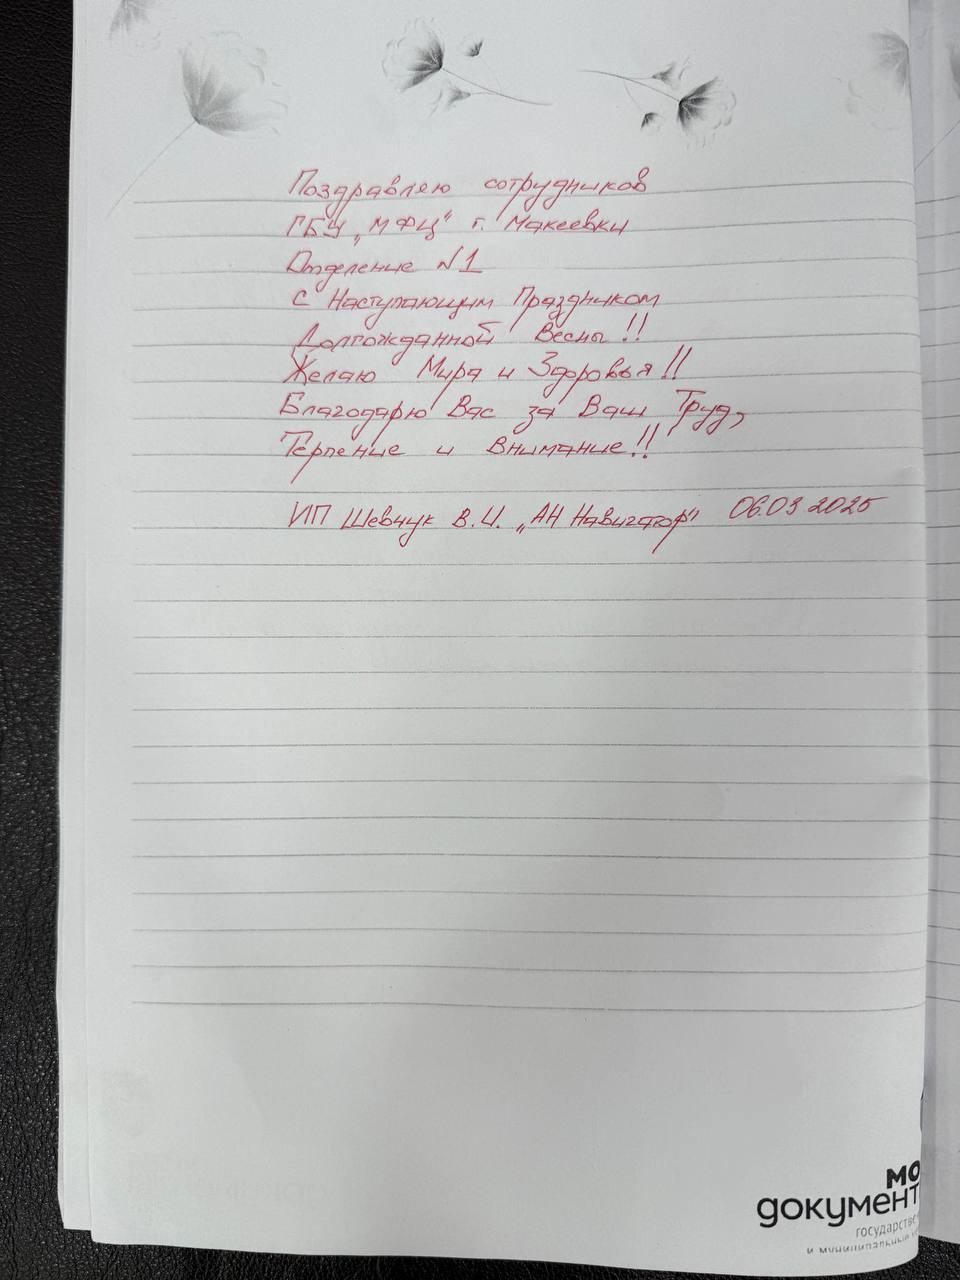 Поздравляю сотрудников
ГБУ „МФЦ" г. Макеевки
Отделение N1
с Наступающим Праздником
Долгожданной Весны!!
Желаю Мира и Здоровья!!
Благодарю Вас за Ваш Труд,
Терпение и Внимание!!
ИП Шевчук В.И. „АН Навигатор" 06.03.2025
МО
документ
государстве
и муниципальные